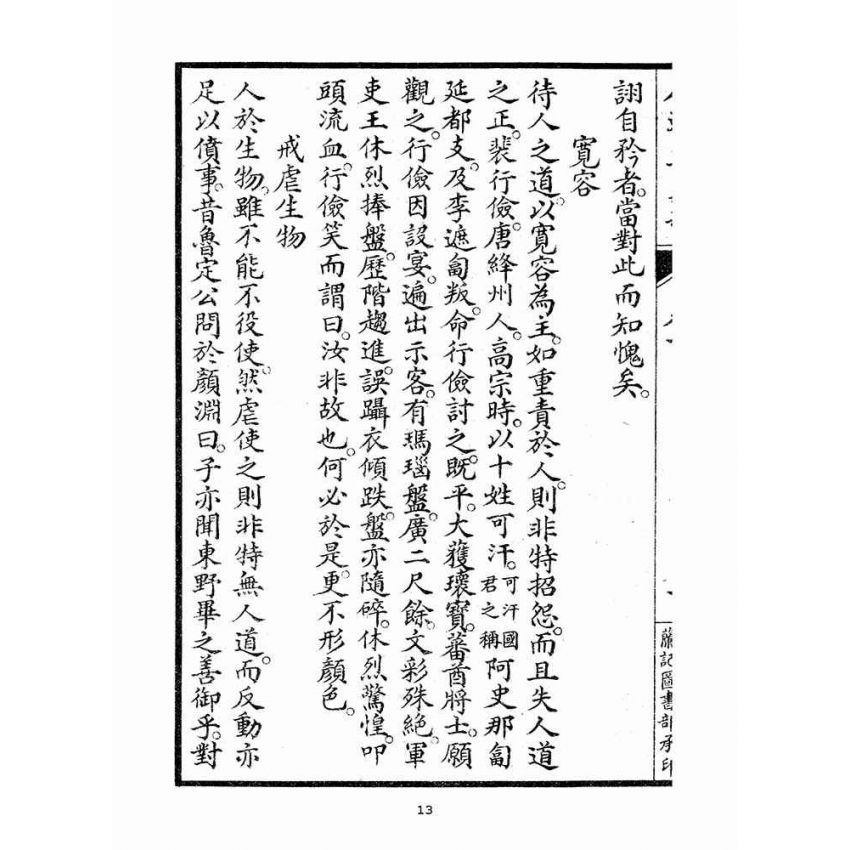 詡自矜者。當對此而知愧矣。
寬容
待人之道。以寬容為主。如重責於人。則非特招怨。而且失人道
之正。裴行儉。唐絳州人。高宗時。以十姓可汗。可汗國君之稱阿史那匐
延都支。及李遮匐叛。命行儉討之。既平。大獲瓌寶。蕃酋將士。願
觀之。行儉因設宴。遍出示客。有瑪瑙盤。廣二尺餘。文彩殊絕。軍
吏王休烈捧盤。歷階趨進。誤躡衣傾跌。盤亦隨碎。休烈驚惶。叩
頭流血。行儉笑而謂曰。汝非故也。何必於是。更不形顏色。
戒虐生物
人於生物。雖不能不役使。然虐使之則非特無人道。而反動亦
足以僨事。昔魯定公問於顏淵曰。子亦聞東野畢之善御乎。對
記圖書部承印
13